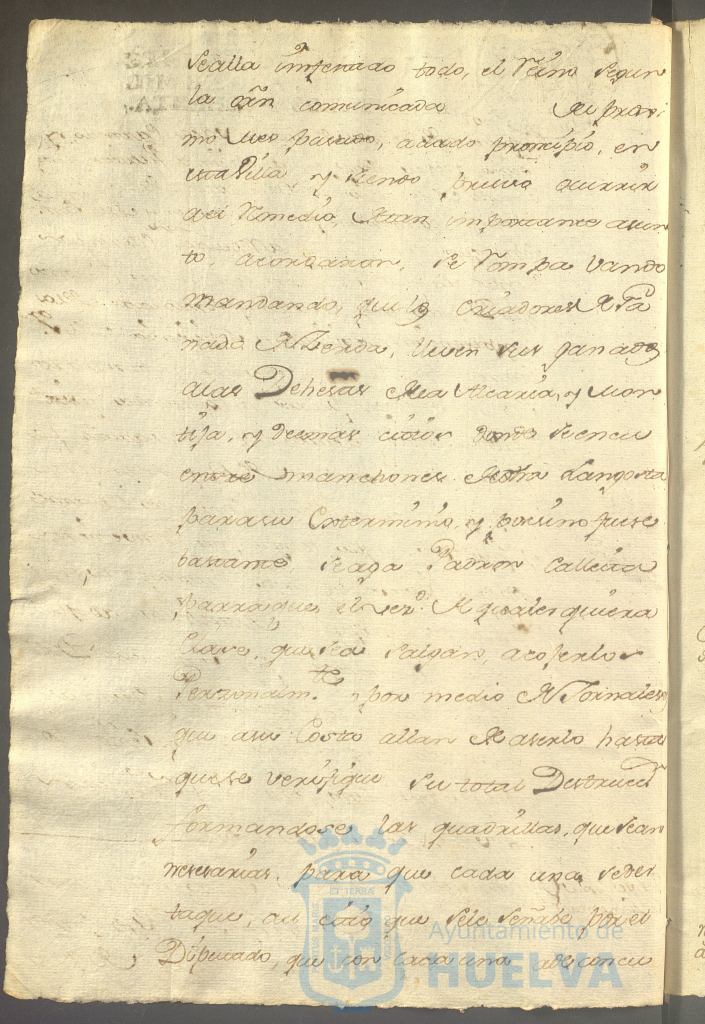 sealla imfestado todo, el Reino segun
la orn comunicada el proxi
mo mes pasado, a dado principio, en
esta Villa, y siendo presiso ocurrir
al Remedio, de tan importante asun
to, acordaron, se Rompa Vando
mandando, que los Criadores de Ga
nado de Zerda, lleven sus ganados
a las Dehesas de la Alcaria, y Mon
tija, y demas citios donde se encu
entre manchones de otra Langosta
para su Exterminio, y por si no fuese
bastante se aga Padron Calleita
para que el Vez.o de qualesquiera
Clase, que sea salgan, acojerlo
Personalm.te y por medio de Jornales
que a su Costo allan de aserlo hasta
que se verifique su total Destrucc.n
formandose las quadrillas, que sean
nesesarias, para que cada una se des
taque, al citio que se le señale por el
Diputado, que con cada una a de concu
Ayuntamiento de
HUELVA